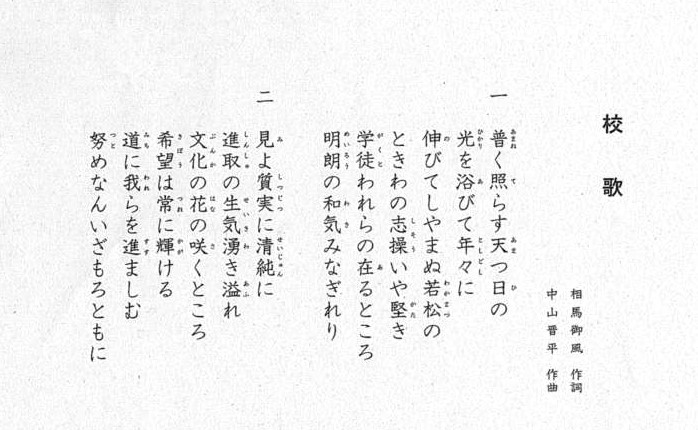 校歌
相馬御風 作詞
中山晋平 作曲
一
普く照らす天つ日の
光を浴びて年々に
伸びてしやまぬ若松の
ときわの志操いや堅き
学徒われらの在るところ
明朗の和気みなぎれり
二
見よ質実に清純に
進取の生気湧き溢れ
文化の花の咲くところ
希望は常に輝ける
道に我らを進ましむ
努めなんいざもろともに